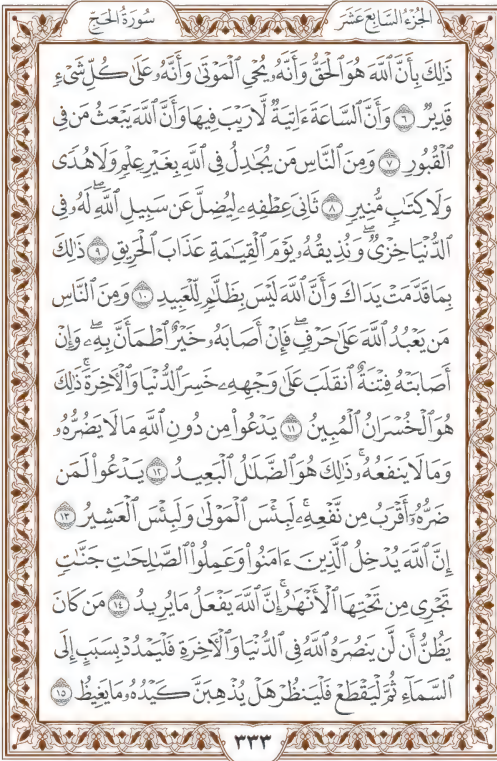 الجزء السابع عشر
سورة الحج
ذَٰلِكَ بِأَنَّ ٱللَّهَ هُوَ ٱلْحَقُّ وَأَنَّهُۥ يُحْيِ ٱلْمَوْتَىٰ وَأَنَّهُۥ عَلَىٰ كُلِّ شَىْءٍ
قَدِيرٌ ٦ وَأَنَّ ٱلسَّاعَةَ ءَاتِيَةٌ لَّا رَيْبَ فِيهَا وَأَنَّ ٱللَّهَ يَبْعَثُ مَن فِى
ٱلْقُبُورِ ٧ وَمِنَ ٱلنَّاسِ مَن يُجَٰدِلُ فِى ٱللَّهِ بِغَيْرِ عِلْمٍ وَلَا هُدًى
وَلَا كِتَٰبٍ مُّنِيرٍ ٨ ثَانِىَ عِطْفِهِۦ لِيُضِلَّ عَن سَبِيلِ ٱللَّهِ ۖ لَهُۥ فِى
ٱلدُّنْيَا خِزْىٌ ۖ وَنُذِيقُهُۥ يَوْمَ ٱلْقِيَٰمَةِ عَذَابَ ٱلْحَرِيقِ ٩ ذَٰلِكَ
بِمَا قَدَّمَتْ يَدَاكَ وَأَنَّ ٱللَّهَ لَيْسَ بِظَلَّٰمٍ لِّلْعَبِيدِ ١٠ وَمِنَ ٱلنَّاسِ
مَن يَعْبُدُ ٱللَّهَ عَلَىٰ حَرْفٍ ۖ فَإِنْ أَصَابَهُۥ خَيْرٌ ٱطْمَأَنَّ بِهِۦ ۖ وَإِنْ
أَصَابَتْهُ فِتْنَةٌ ٱنقَلَبَ عَلَىٰ وَجْهِهِۦ خَسِرَ ٱلدُّنْيَا وَٱلْءَاخِرَةَ ۚ ذَٰلِكَ
هُوَ ٱلْخُسْرَانُ ٱلْمُبِينُ ١١ يَدْعُوا۟ مِن دُونِ ٱللَّهِ مَا لَا يَضُرُّهُۥ
وَمَا لَا يَنفَعُهُۥ ۚ ذَٰلِكَ هُوَ ٱلضَّلَٰلُ ٱلْبَعِيدُ ١٢ يَدْعُوا۟ لَمَن
ضَرُّهُۥٓ أَقْرَبُ مِن نَّفْعِهِۦ ۚ لَبِئْسَ ٱلْمَوْلَىٰ وَلَبِئْسَ ٱلْعَشِيرُ ١٣
إِنَّ ٱللَّهَ يُدْخِلُ ٱلَّذِينَ ءَامَنُوا۟ وَعَمِلُوا۟ ٱلصَّٰلِحَٰتِ جَنَّٰتٍ
تَجْرِى مِن تَحْتِهَا ٱلْأَنْهَٰرُ ۚ إِنَّ ٱللَّهَ يَفْعَلُ مَا يُرِيدُ ١٤ مَن كَانَ
يَظُنُّ أَن لَّن يَنصُرَهُ ٱللَّهُ فِى ٱلدُّنْيَا وَٱلْءَاخِرَةِ فَلْيَمْدُدْ بِسَبَبٍ إِلَى
ٱلسَّمَآءِ ثُمَّ لْيَقْطَعْ فَلْيَنظُرْ هَلْ يُذْهِبَنَّ كَيْدُهُۥ مَا يَغِيظُ ١٥
٣٣٣